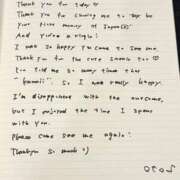 Thank you for today
Thank you for coming me to
your first money of Japanese
And you're a virgin!
I was so happy I'm come to see me.
Thank you for the cute smile too
You told me so many time that
"kawaii". So I was really happy.
I'm disappointed with the outcome,
but I enjoyed the time I spent
with you.
Please come see me again!
Thankyou so much =)